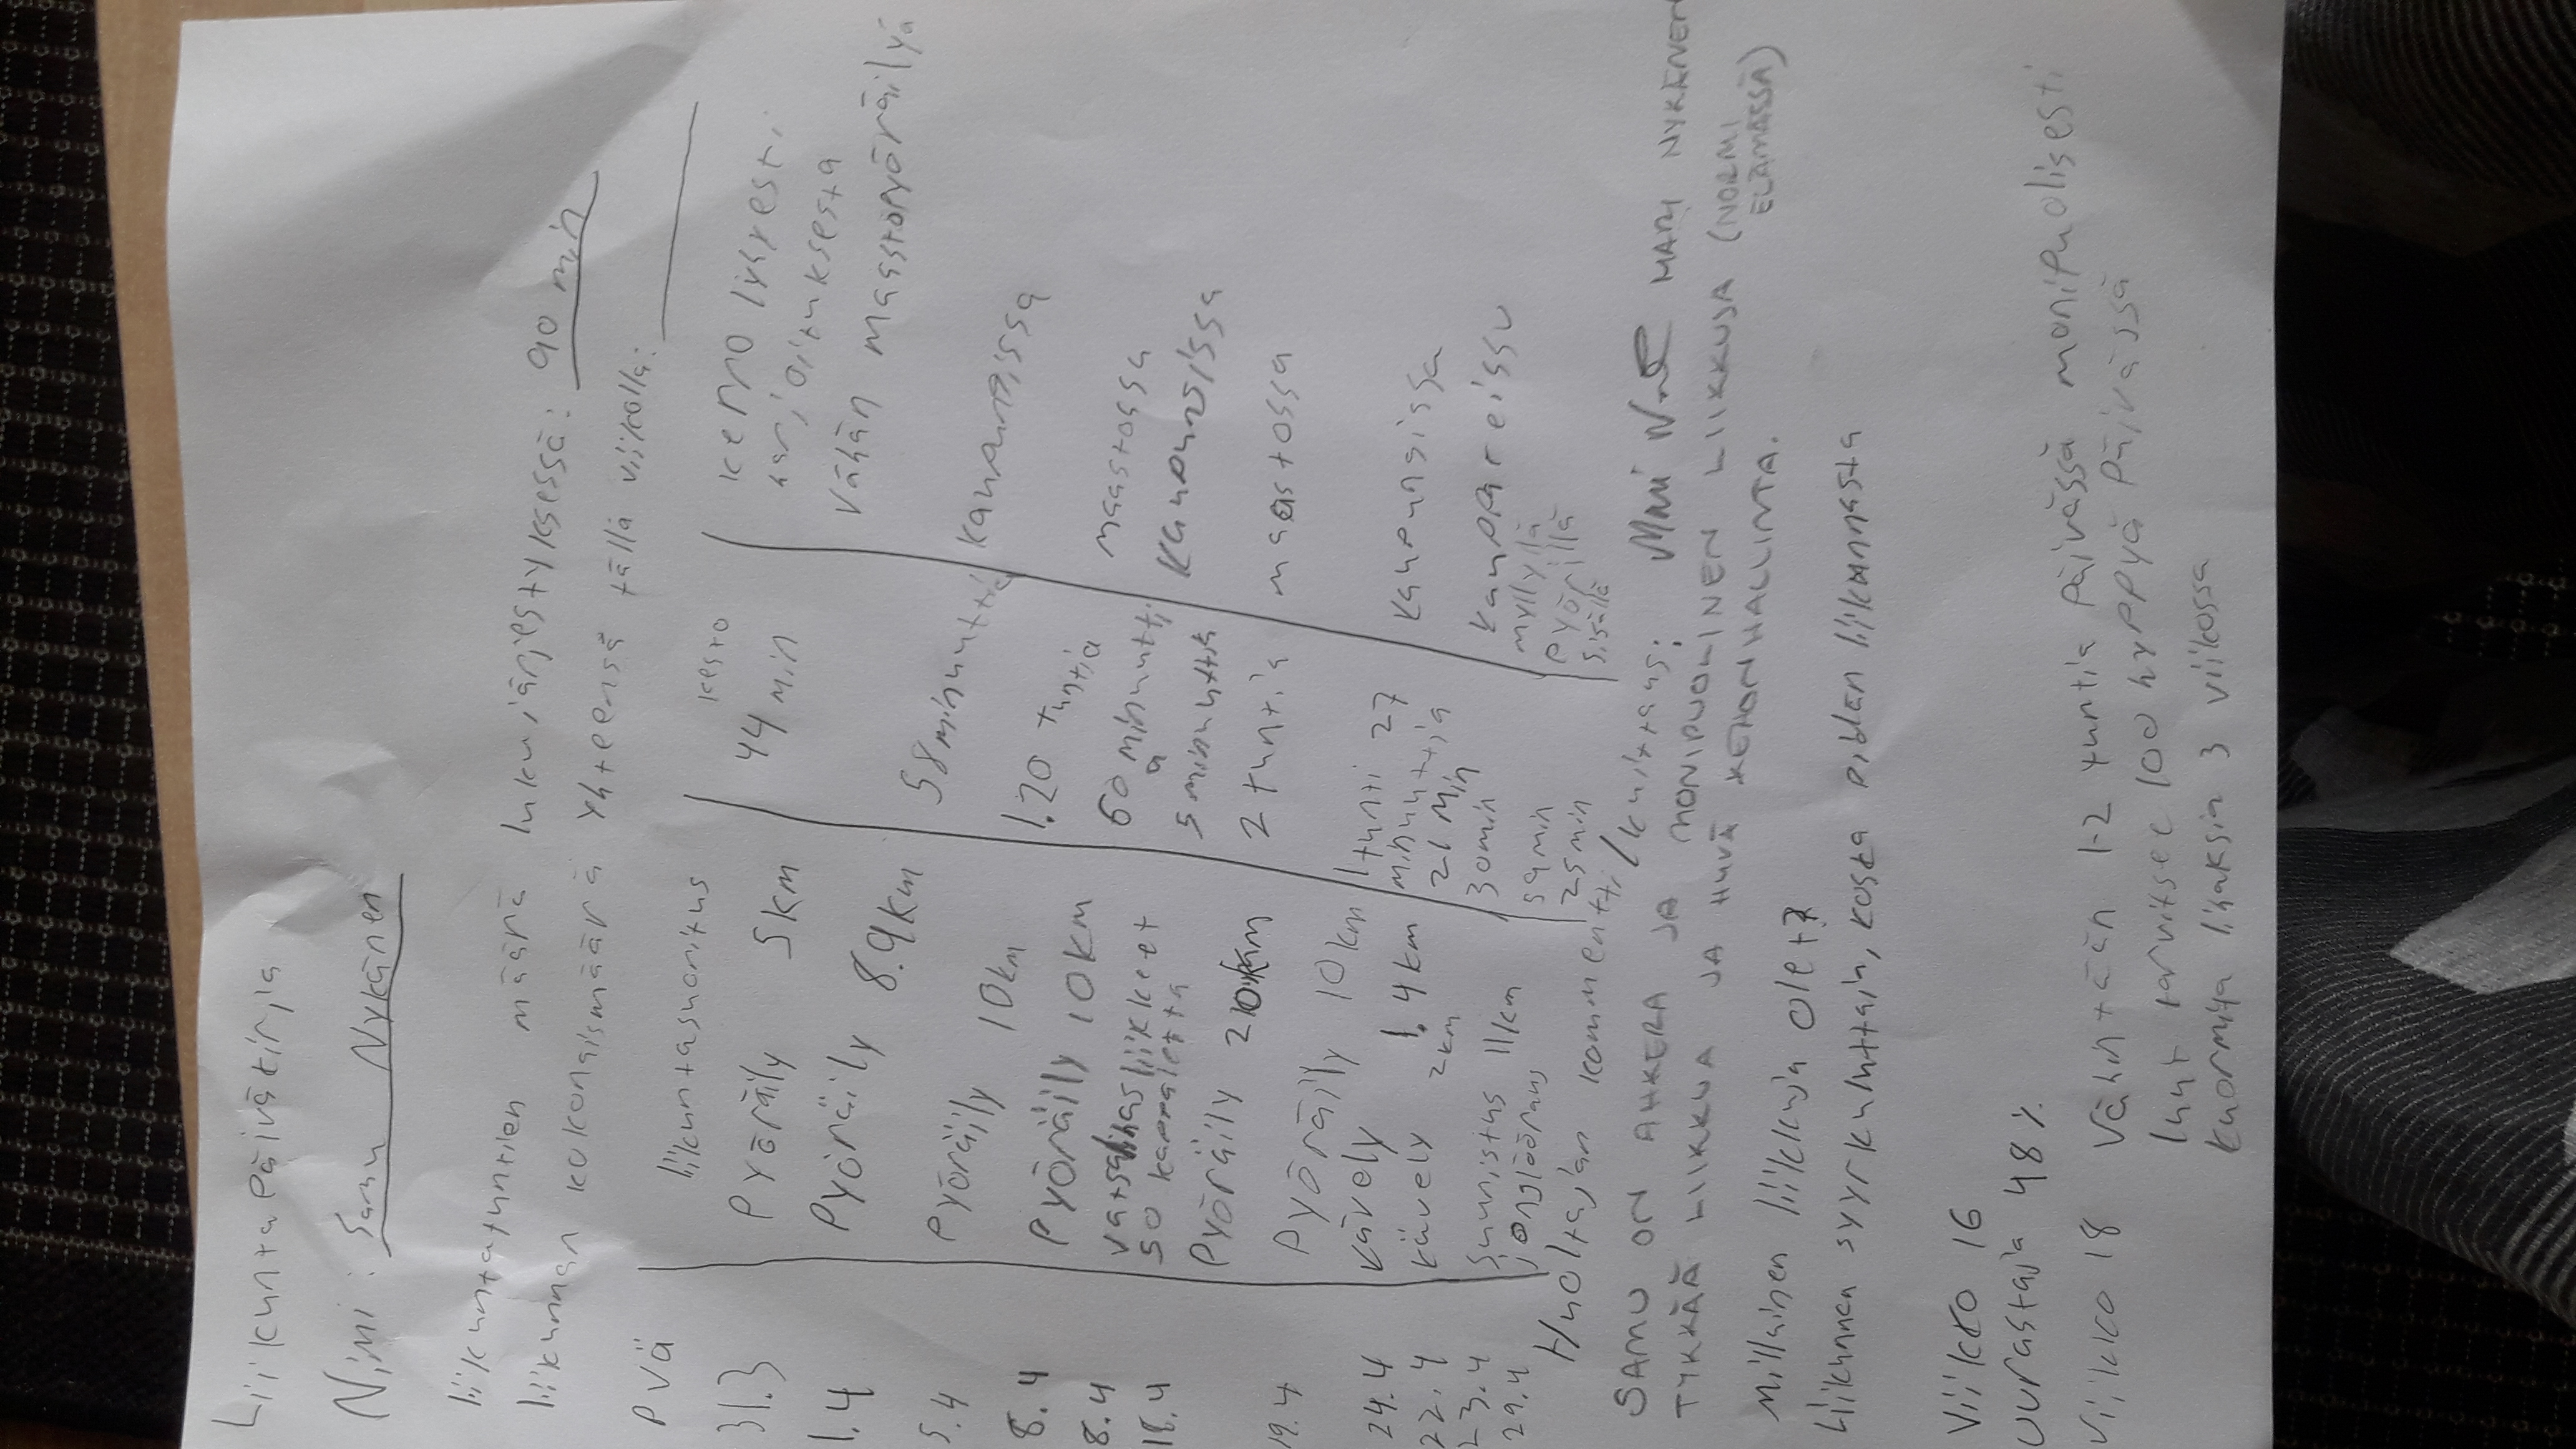 Liikuntapäiväkirja
Nimi: Samu Nykänen
liikuntatuntien määrä lukujärjestyksessä: 90 min
liikunnan kokonaismäärä yhteensä tällä viikolla:
pvä liikuntasuoritus kesto
31.3 Pyöräily 5km 44 min kerro lyhyesti harjoituksesta
1.4 Pyöräily 8.9km vähän maastopyöräilyä
5.4 Pyöräily 10km 58 minuuttia kaupungissa
8.4 Pyöräily 10km 1.20 tuntia
8.4 vatsalihasliikkeet 60 minuuttia maastossa
18.4 50 kappaletta 5 minuuttia
Pyöräily 20km 2 tuntia maastossa
19.4 Pyöräily 10km 1 tunti 27 minuuttia
24.4 kävely 1.4km 21 min kaupungissa
22.4 kävely 2km 30min
23.4 Suunnistus 11km 59min
29.4 jonglööraus 25min
myllyllä
pyörillä
sisällä
Huoltajan kommentti/kuittaus:
SAMU ON AHKERA JA MONIPUOLINEN LIIKKUJA (NORMI ELÄMÄSSÄ)
TYKKÄÄ LIIKKUA JA HYVÄ KEHONHALLINTA.
MARI NYKÄNEN
Millainen liikkuja olet?
Liikunnan syrkuluttain, koska pidän liikunnasta
Viikko 16
uurastaja 48%
Viikko 18 vähintään 1-2 tuntia päivässä monipuolisesti
luut tarvitsee 100 hyppyä päivässä
kuormita lihaksia 3 viikossa